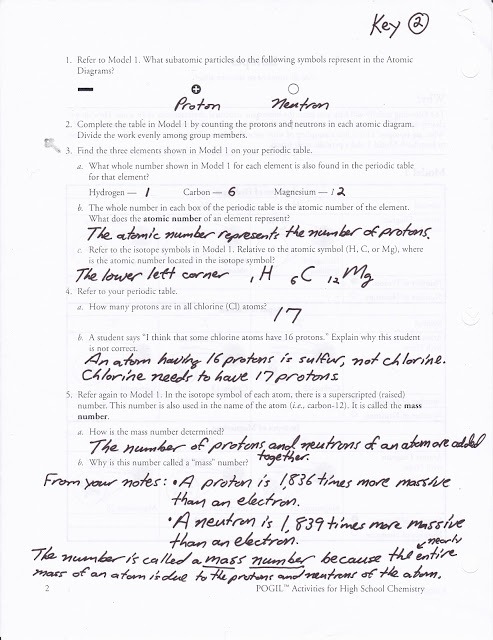 Key 2
1. Refer to Model 1. What subatomic particles do the following symbols represent in the Atomic
Diagrams?
Proton Neutron
2. Complete the table in Model 1 by counting the protons and neutrons in each atomic diagram.
Divide the work evenly among group members.
3. Find the three elements shown in Model 1 on your periodic table.
a. What whole number shown in Model 1 for each element is also found in the periodic table
for that element?
Hydrogen — 1 Carbon — 6 Magnesium — 12
b. The whole number in each box of the periodic table is the atomic number of the element.
What does the atomic number of an element represent?
The atomic number represents the number of protons.
c. Refer to the isotope symbols in Model 1. Relative to the atomic symbol (H, C, or Mg), where
is the atomic number located in the isotope symbol?
The lower left corner ₁H ₆C ₁₂Mg
4. Refer to your periodic table.
a. How many protons are in all chlorine (Cl) atoms? 17
b. A student says "I think that some chlorine atoms have 16 protons." Explain why this student
is not correct.
An atom having 16 protons is sulfur, not chlorine.
Chlorine needs to have 17 protons.
5. Refer again to Model 1. In the isotope symbol of each atom, there is a superscripted (raised)
number. This number is also used in the name of the atom (i.e., carbon-12). It is called the mass
number.
a. How is the mass number determined?
The number of protons and neutrons of an atom are added
together.
b. Why is this number called a "mass" number?
From your notes: • A proton is 1,836 times more massive
than an electron.
• A neutron is 1,839 times more massive
than an electron.
nearly
The number is called a mass number because the entire
mass of an atom is due to the protons and neutrons of the atom.
2 POGIL™ Activities for High School Chemistry